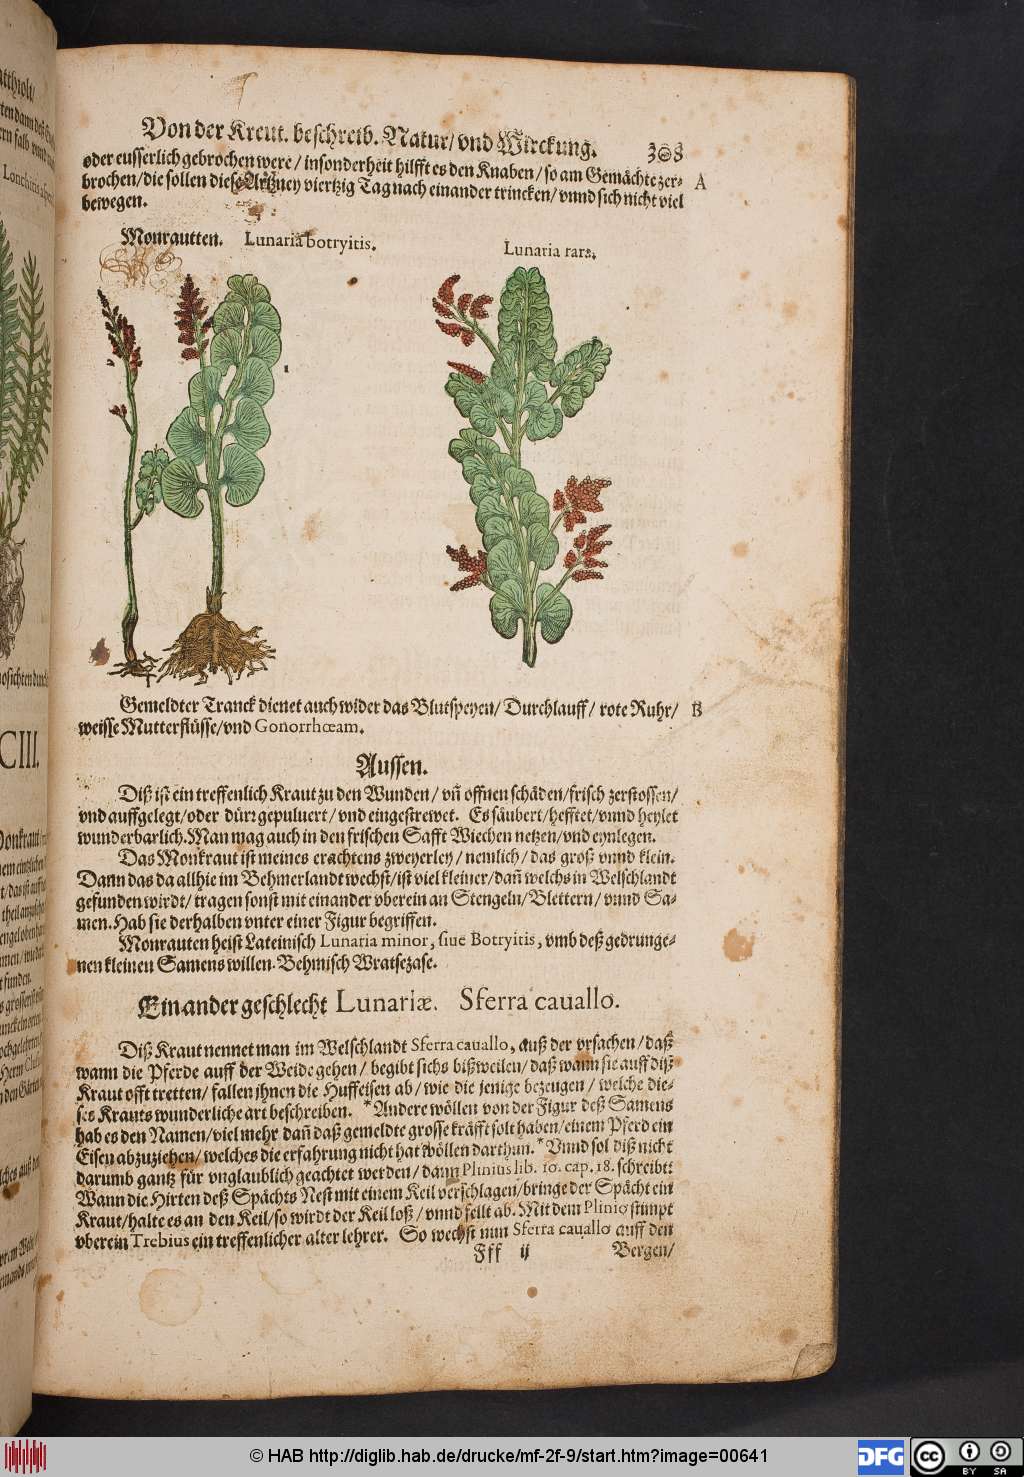 Von der Kreut. beschreib. Natur/ vnd Wirckung. 308
oder eusserlich gebrochen were / insonderheit hilfft es den Knaben / so am Gemächte zer-
brochen/die sollen diese Artzney viertzig Tag nach einander trincken/ vnnd sich nicht viel A
bewegen.
Monrautten. Lunaria botryitis.
Lunaria rara.
Gemeldter Tranck dienet auch wider das Blutspeyen/ Durchlauff/ rote Ruhr/ B
weisse Mutterflüsse/vnd Gonorrhœam.
Aussen.
Diß ist ein treffenlich Kraut zu den Wunden/ vñ offnen schäden/frisch zerstossen/
vnd auffgelegt/oder dürr gepuluert/ vnd eingestrewet. Es säubert/hefftet/vnnd heylet
wunderbarlich. Man mag auch in den frischen Safft Wiechen netzen/vnd eynlegen.
Das Monkraut ist meines erachtens zweyerley/ nemlich/ das groß vnnd klein.
Dann das da allhie im Behmerlandt wechst/ist viel kleiner/dañ welchs in Welschlandt
gefunden wirdt/ tragen sonst mit einander vberein an Stengeln/Blettern/ vnnd Sa-
men. Hab sie derhalben vnter einer Figur begriffen.
Monrauten heist Lateinisch Lunaria minor, siue Botryitis, vmb deß gedrunge-
nen kleinen Samens willen. Behmisch Wratsezase.
Ein ander geschlecht Lunariæ. Sferra cauallo.
Diß Kraut nennet man im Welschlandt Sferra cauallo, auß der vrsachen/ daß
wann die Pferde auff der Weide gehen/ begibt sichs bißweilen/ daß wann sie auff diß
Kraut offt tretten/ fallen ihnen die Huffeisen ab/ wie die jenige bezeugen/ welche die-
ses Krauts wunderliche art beschreiben. *Andere wöllen von der Figur deß Samens
hab es den Namen/viel mehr dañ daß gemeldte grosse kräfft solt haben/einem Pferd ein
Eisen abzuziehen/welches die erfahrung nicht hat wöllen darthun.* Vnnd sol diß nicht
darumb gantz für vnglaublich geachtet werden/ dann Plinius lib. 10. cap. 18. schreibt:
Wann die Hirten deß Spächts Nest mit einem Keil verschlagen/bringe der Spächt ein
Kraut/halte es an den Keil/so wirdt der Keil loß/ vnnd fellt ab. Mit dem Plinio stimpt
vberein Trebius ein treffenlicher alter lehrer. So wechst nun Sferra cauallo auff den
Fff ij Bergen/
CIII.
© HAB http://diglib.hab.de/drucke/mf-2f-9/start.htm?image=00641
DFG
cc BY SA